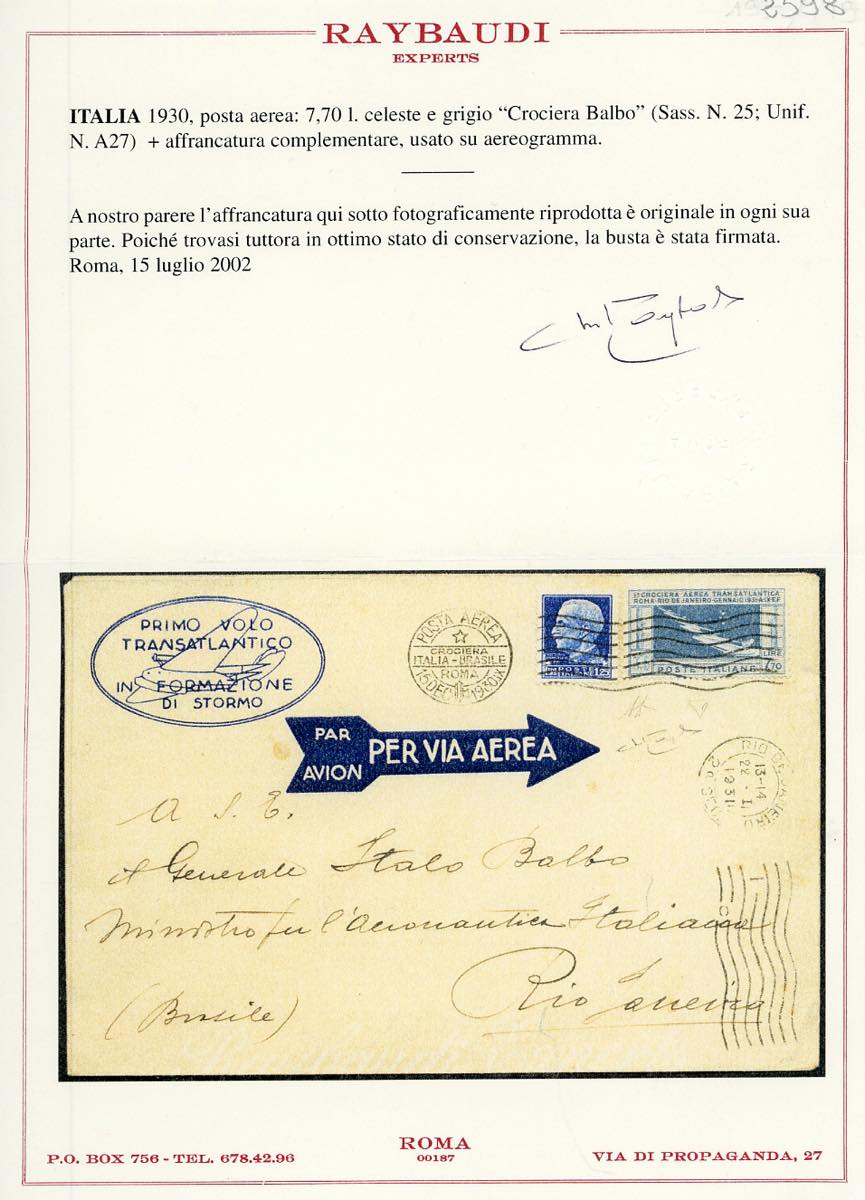 2598
RAYBAUDI
EXPERTS
ITALIA 1930, posta aerea: 7,70 l. celeste e grigio “Crociera Balbo” (Sass. N. 25; Unif.
N. A27) + affrancatura complementare, usato su aereogramma.
A nostro parere l’affrancatura qui sotto fotograficamente riprodotta è originale in ogni sua
parte. Poiché trovasi tuttora in ottimo stato di conservazione, la busta è stata firmata.
Roma, 15 luglio 2002
PRIMO VOLO
TRANSATLANTICO
IN FORMAZIONE
DI STORMO
POSTA AEREA
CROCIERA
ITALIA-BRASILE
ROMA
15 DEC 1930 IX
POSTE
ITALIANE 1,25
Iª CROCIERA AEREA TRANSATLANTICA
ROMA-RIO DE JANEIRO-GENNAIO 1931-A.IX E.F.
LIRE
7,70
POSTE ITALIANE
PAR
AVION
PER VIA AEREA
RIO DE JANEIRO
13-14
22 . I
1931
A S. E.
il Generale Italo Balbo
Ministro per l'Aeronautica Italiana
Rio Janeiro
(Brasile)
ROMA
00187
P.O. BOX 756 - TEL. 678.42.96
VIA DI PROPAGANDA, 27